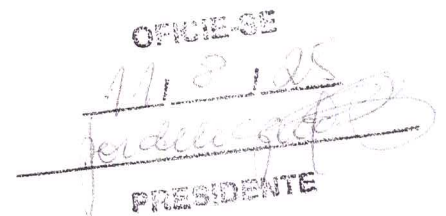 OFICIE-SE
11, 8, 25
PRESIDENTE